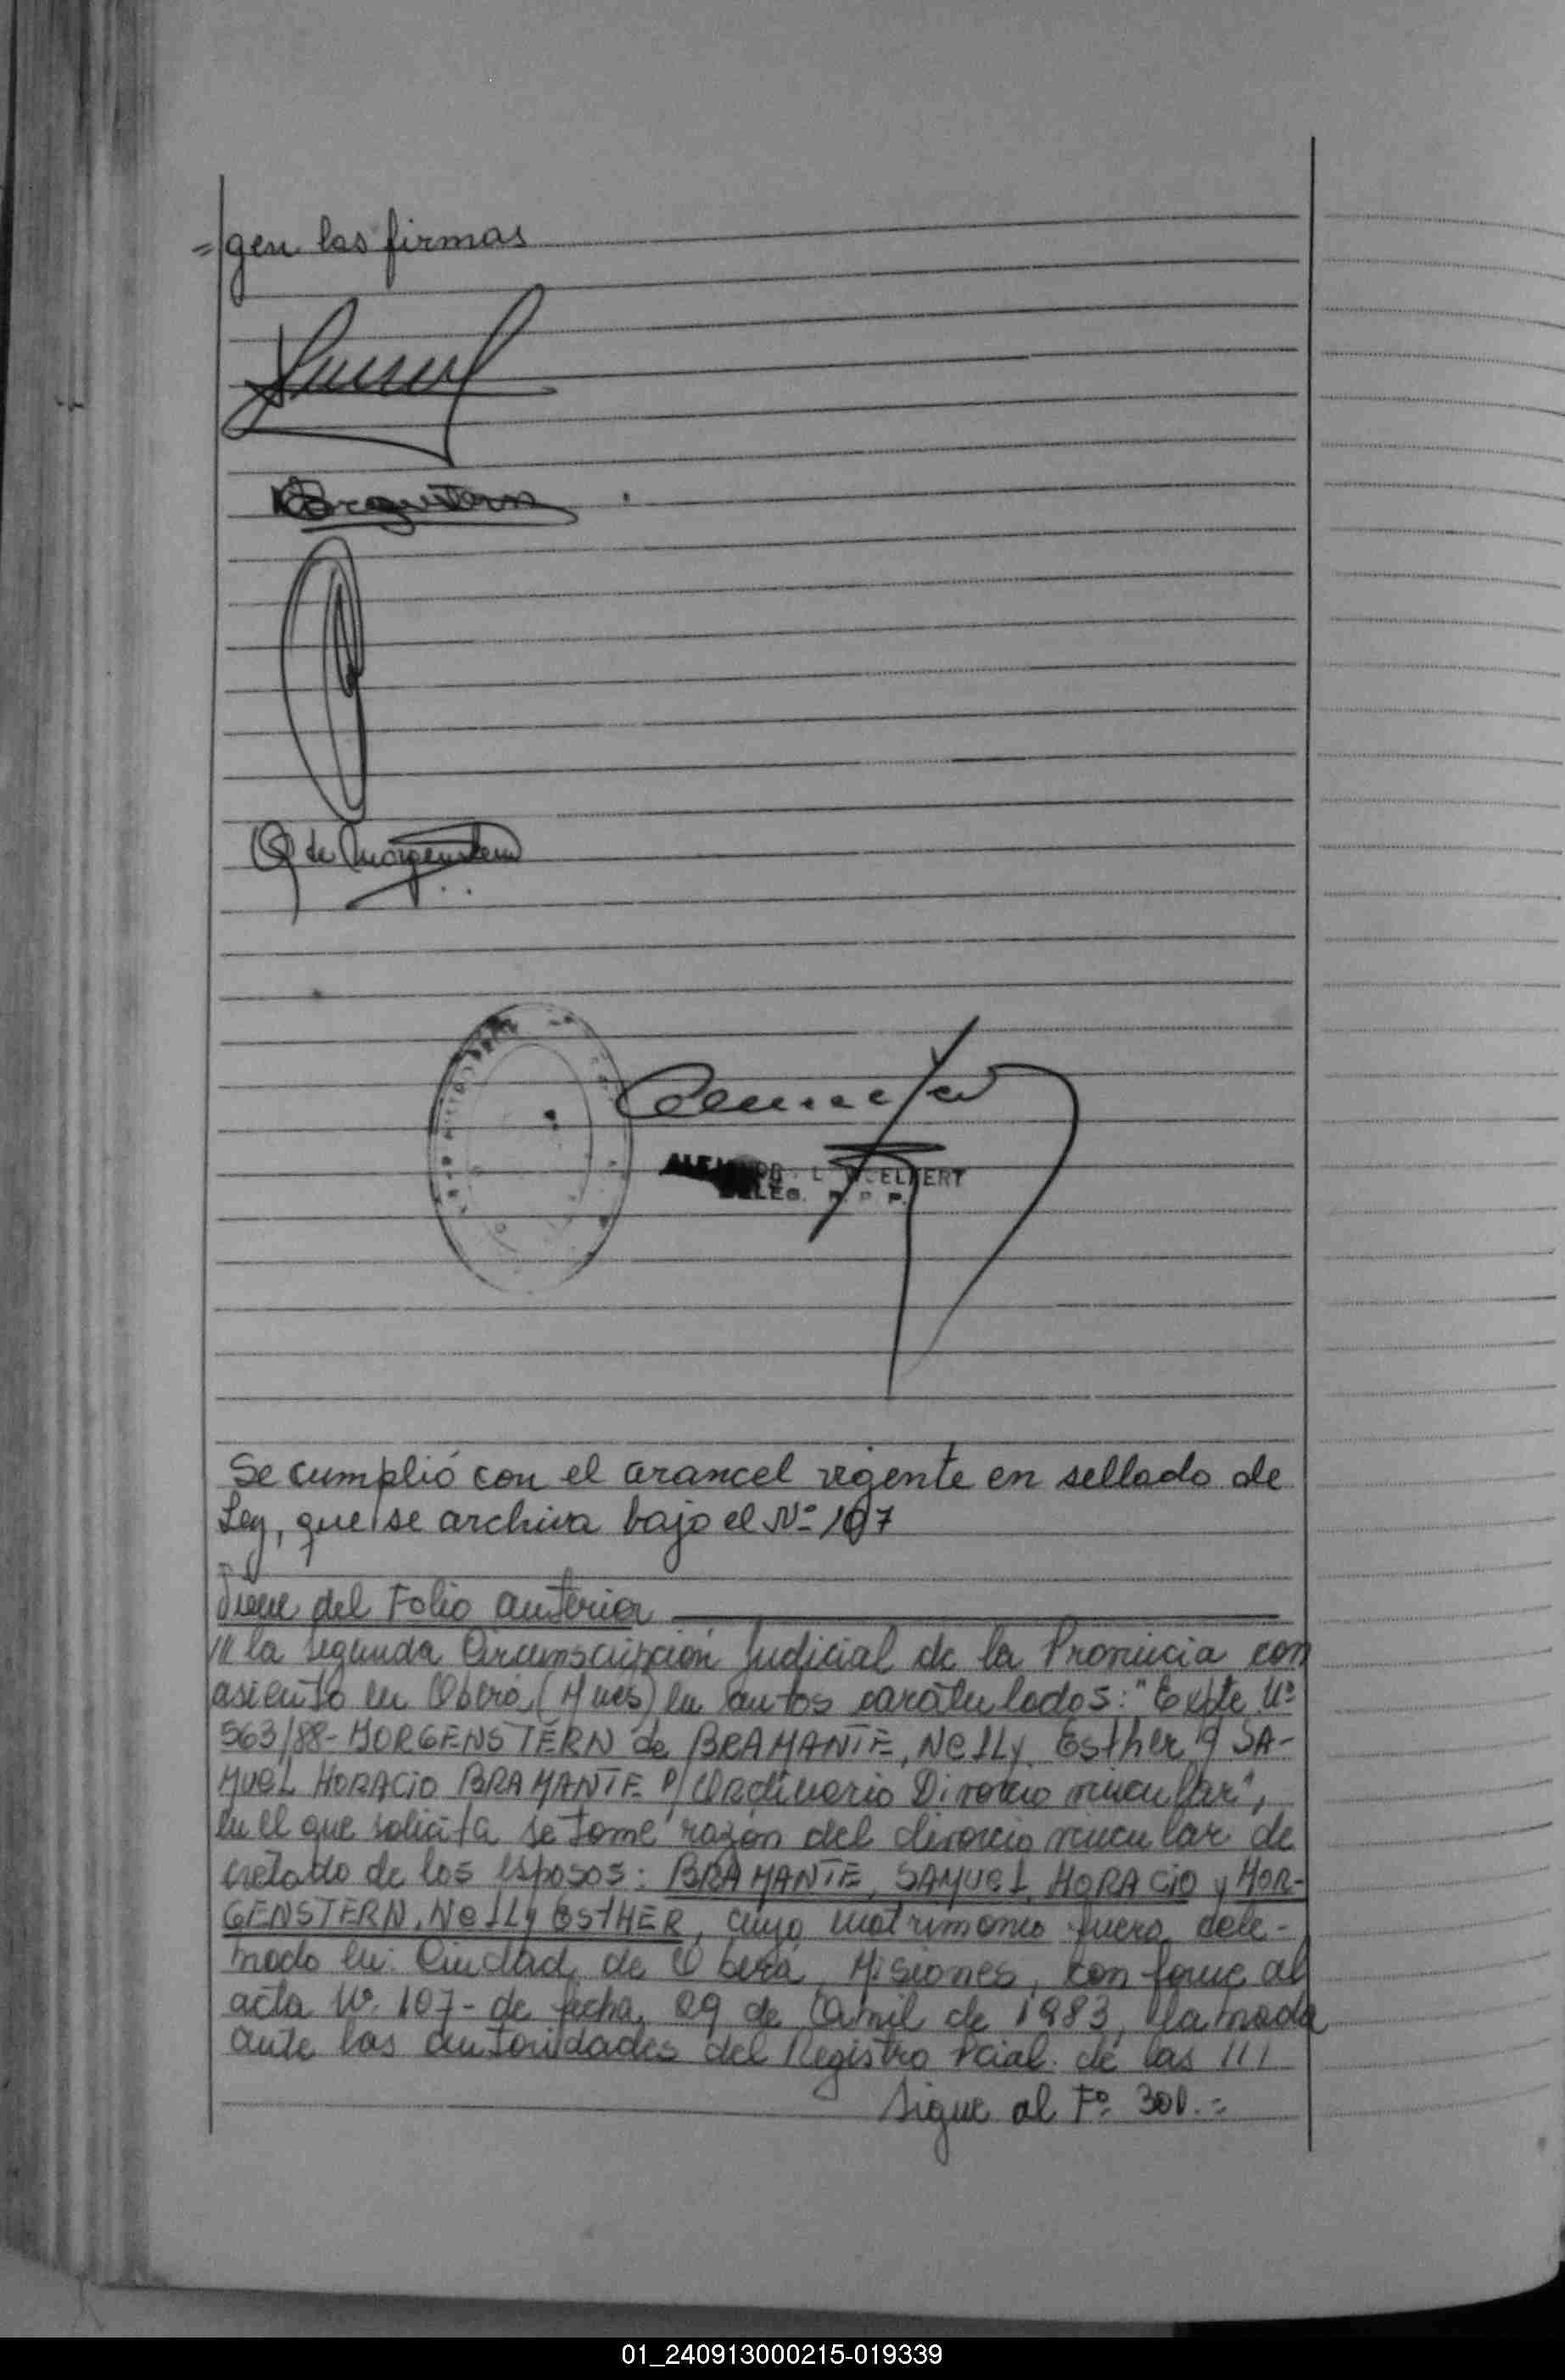 = gen las firmas
Q de Morgenstern
DELEG. R. P. P.
Se cumplió con el arancel vigente en sellado de
Ley, que se archiva bajo el Nº 107
Viene del Folio anterior
/// la Segunda Circunscripción Judicial de la Provincia con
asiento en Oberá (Mnes) en autos caratulados: "Expte Nº
563/88- MORGENSTERN de BRAMANTE, Nelly Esther y SA-
MUEL HORACIO BRAMANTE P/ Ordinario Divorcio vincular",
en el que solicita se tome razón del divorcio vincular de
cretado de los esposos: BRAMANTE, SAMUEL HORACIO y MOR-
GENSTERN, NELLY ESTHER, cuyo matrimonio fuera cele-
brado en: Ciudad de Oberá, Misiones, conforme al
acta Nº 107- de fecha, 29 de Abril de 1983, labrada
ante las autoridades del Registro Pcial. de las ///
Sigue al Fº 300.=
01_240913000215-019339